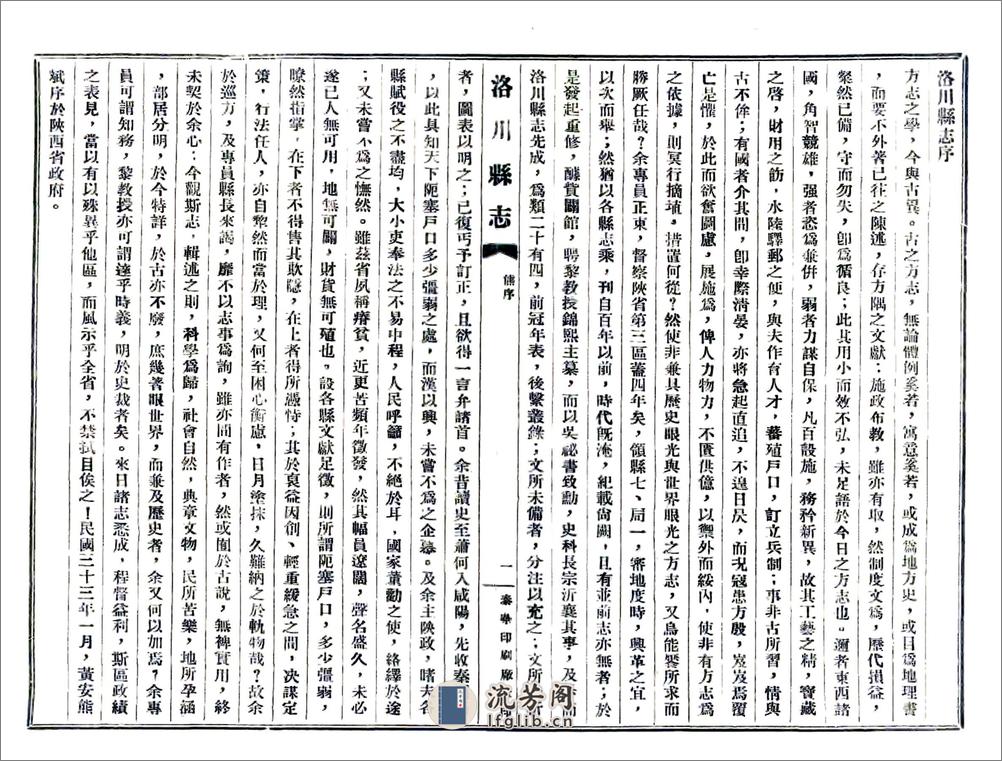 洛川縣志序
方志之學，今與古異。古之方志，無論體例奚若，寓意奚若，或成爲地方史，或目爲地理書
，而要不外著已往之陳述，存方隅之文獻；施政布教，雖亦有取，然制度文爲，歷代損益，
粲然已備，守而勿失，卽爲循良；此其用小而效不弘，未足語於今日之方志也。邇者東西諸
國，角智競雄，强者恣爲兼併，弱者力謀自保，凡百設施，務矜新異，故其工藝之精，寶藏
之啓，財用之飭，水陸驛郵之便，與夫作育人才，蕃殖戶口，訂立兵制；事非古所習，情與
古不侔；有國者介其間，卽幸際淸晏，亦將急起直追，不遑日昃，而況寇患方殷，岌岌焉覆
亡是懼，於此而欲奮鬭慮，展施爲，俾人力物力，不匱供億，以禦外而綏內，使非有方志爲
之依據，則冥行擿埴，措置何從？然使非兼具歷史眼光與世界眼光之方志，又烏能饜所求而
勝厥任哉？余專員正東，督察陝省第三區蓋四年矣，領縣七、局一，審地度時，興革之宜，
以次而舉；然猶以各縣志乘，刊自百年以前，時代旣淹，紀載尙闕，且有並前志亦無者；於
是發起重修，醵貲闢館，聘黎教授錦熙主纂，而以吳祕書致勳，史科長宗沂襄其事，及
洛川縣志先成，爲類二十有四，前冠年表，後繫叢錄；文所未備者，分注以充之；文所
洛川縣志
熊序
一
泰華印刷廠
者，圖表以明之；已復丐予訂正，且欲得一言弁諸首。余昔讀史至蕭何入咸陽，先收秦
，以此具知天下阨塞戶口多少彊弱之處，而漢以興，未嘗不爲之企慕。及余主陝政，嗜夫各
縣賦役之不盡均，大小吏奉法之不易中程，人民呼籲，不絕於耳，國家董勸之使，絡繹於途
；又未嘗不爲之憮然。雖茲省夙稱瘠貧，近更苦頻年徵發，然其幅員遼闊，聲名盛久，未必
遂已人無可用，地無可闢，財貨無可殖也。設各縣文獻足徵，則所謂阨塞戶口，多少彊弱，
瞭然指掌，在下者不得售其欺隱，在上者得所憑恃；其於裒益因創、輕重緩急之間，決謀定
策，行法任人，亦自犂然而當於理，又何至困心衡慮，日月塗抹，久難納之於軌物哉？故余
於巡方，及專員縣長來謁，靡不以志事爲詢，雖亦間有作者，然或囿於古說，無裨實用，終
未契於余心；今觀斯志，輯述之則，科學爲歸，社會自然，典章文物，民所苦樂，地所孕涵
，部居分明，於今特詳，於古亦不廢，庶幾著眼世界，而兼及歷史者，余又何以加焉？余專
員可謂知務，黎教授亦可謂達乎時義，明於史裁者矣。來日諸志悉成，程督益利，斯區政績
之表見，當以有以殊異乎他區，而風示乎全省，不禁拭目俟之！民國三十三年一月，黃安熊
斌序於陝西省政府。
流芳阁
lfglib.cn